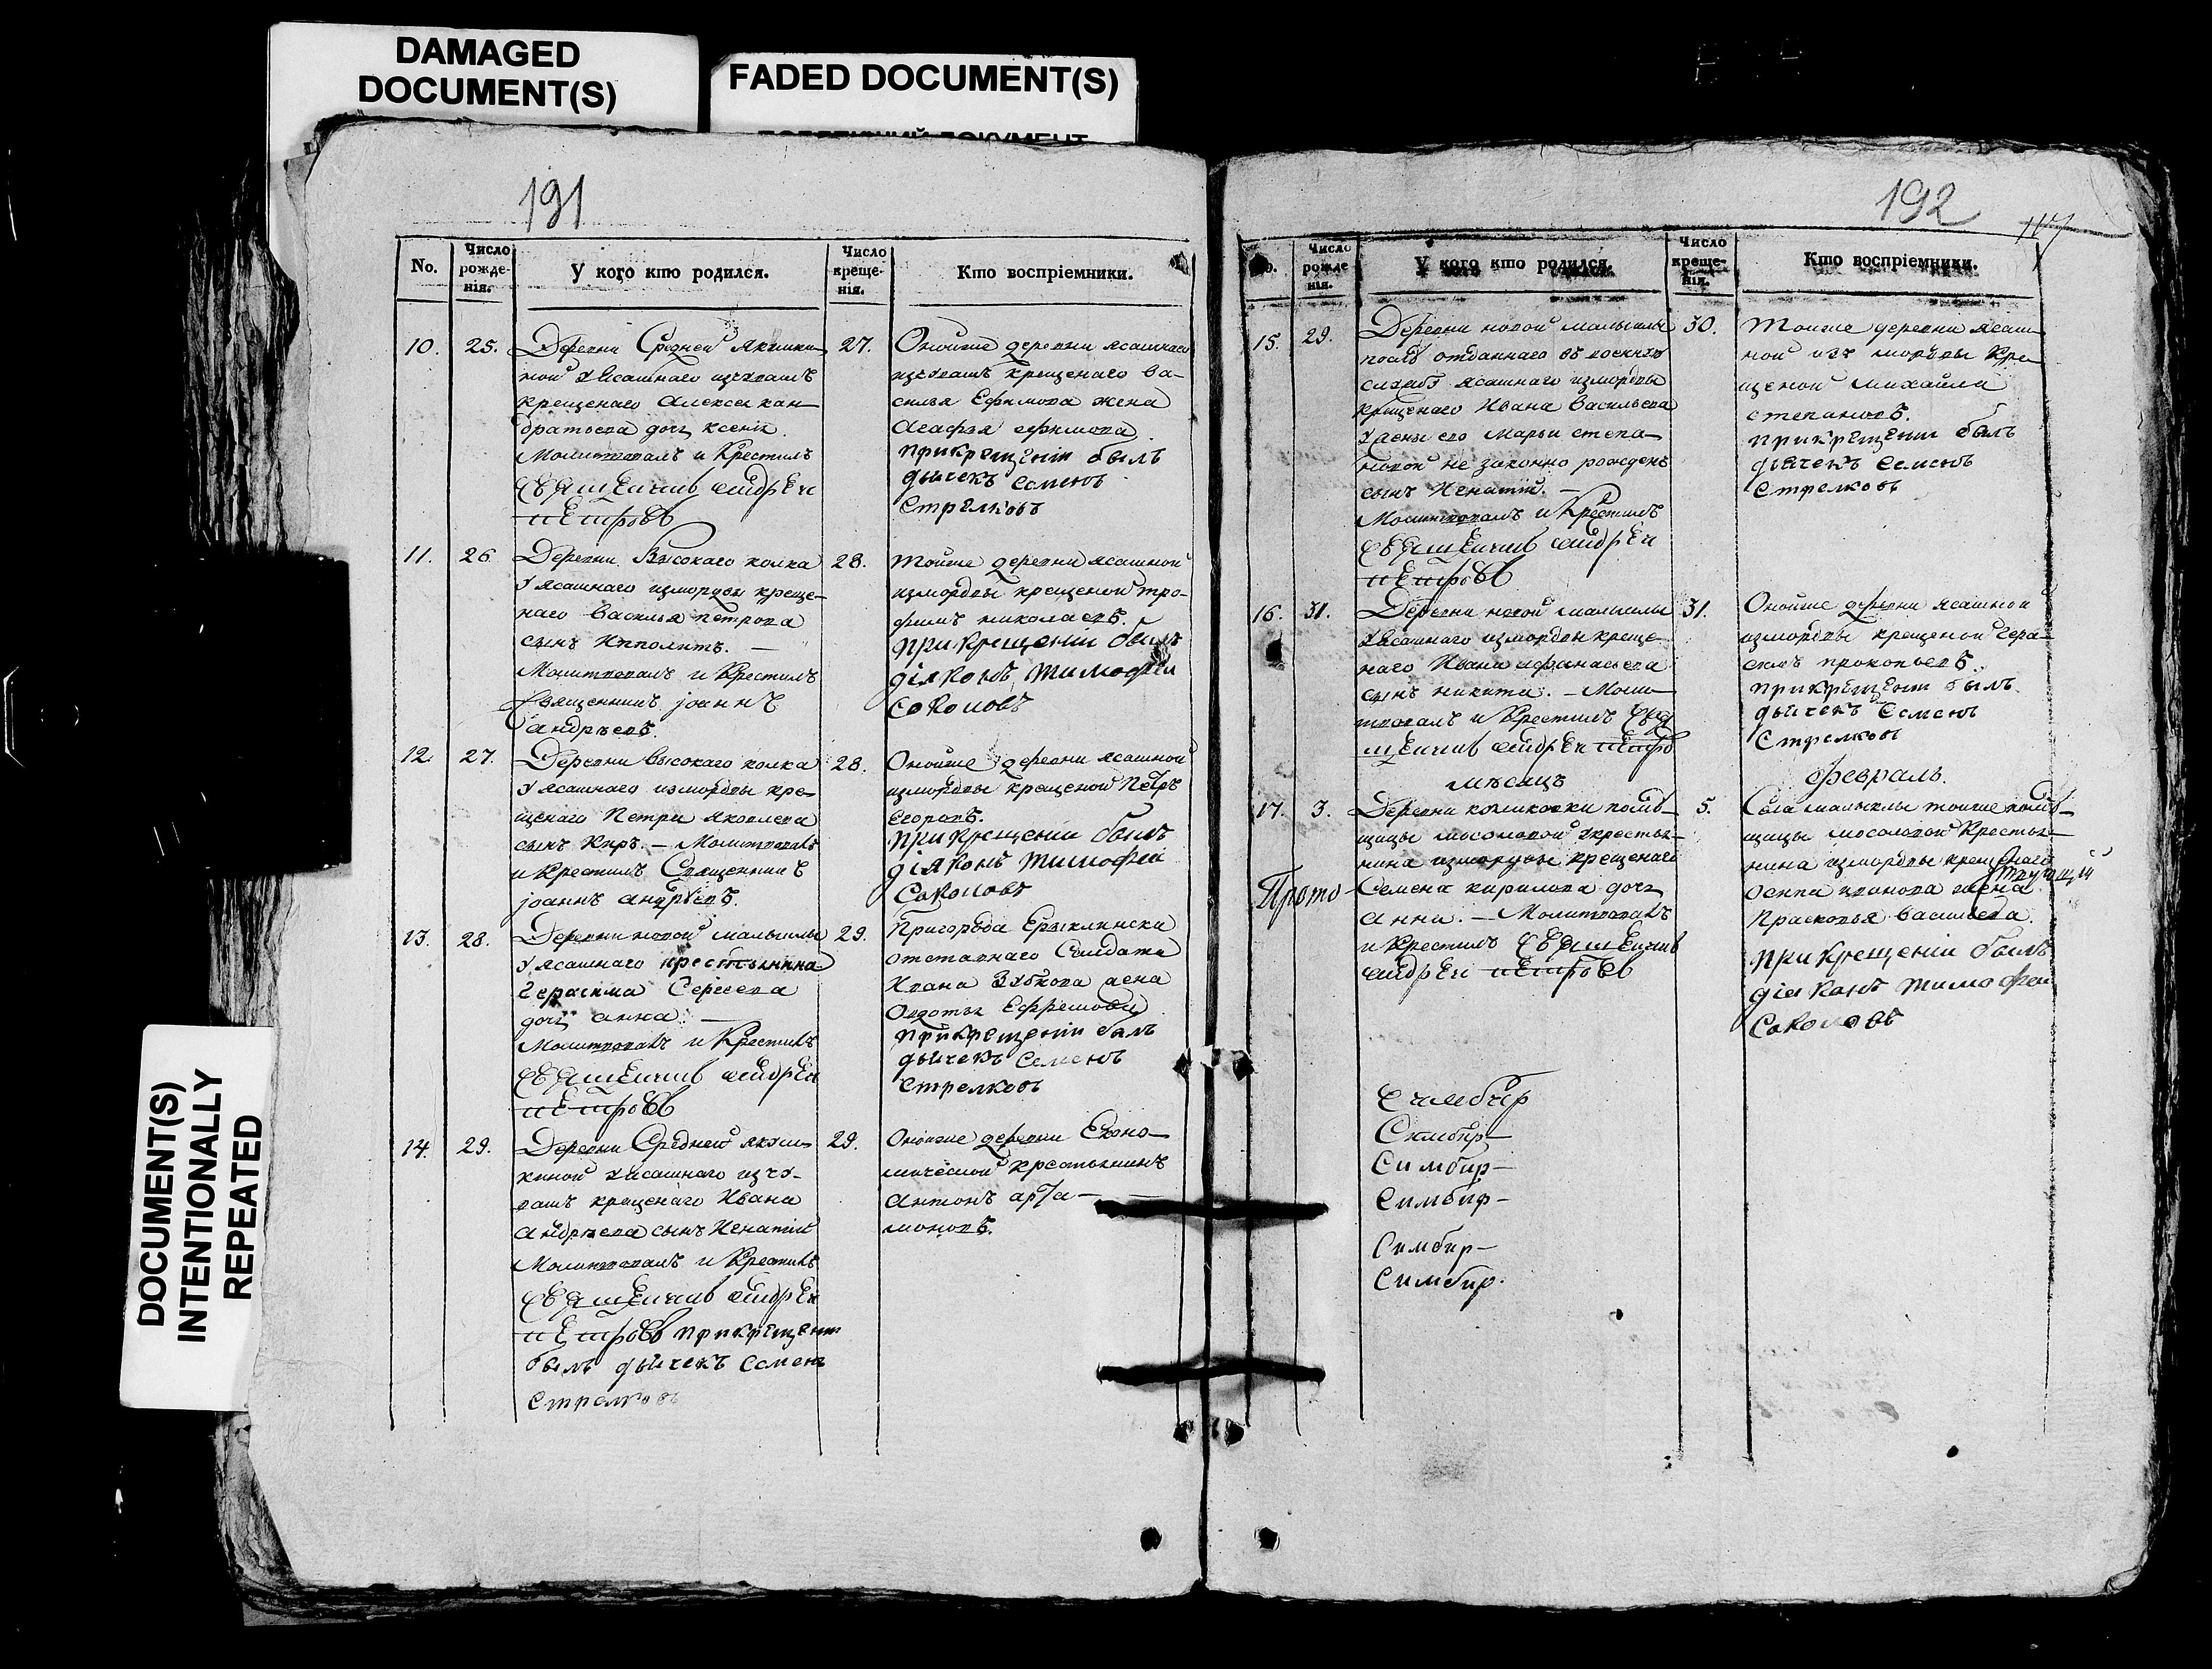 DAMAGED
DOCUMENT(S)
FADED DOCUMENT(S)
DOCUMENT(S)
INTENTIONALLY
REPEATED
191
No.
Число рожде-нія.
У кого кто родился.
Число креще-нія.
Кто воспріемники.
10. 25.
Деревни Средней Якушки-
ной у Ясашнаго изчувашъ
крещенаго Алексея кан-
дратьева дочь ксения.
Молитвовалъ и Крестилъ
священникъ андрей
петровъ
27.
Оной же деревни ясашнаго
изчувашъ крещенаго ва-
силья Ефимова жена
Агафья ефимова.
прикрещении былъ
дьячекъ Семенъ
Стрелковъ
11. 26
Деревни Высокаго колка
у ясашнаго измордвы креще-
наго Василья петрова
сынъ Ипполитъ. —
Молитвовалъ и Крестилъ
Священникъ іоаннъ
андреевъ.
28.
Тойже деревни ясашной
измордвы крещеной тро-
фимъ николаевъ.
прикрещении былъ
діяконъ тимофей
Соколовъ
12. 27.
Деревни высокаго колка
у ясашнаго измордвы кре-
щенаго Петра яковлева
сынъ Киръ. — Молитвовалъ
и Крестилъ Священникъ
іоаннъ андреевъ.
28.
Оной же деревни ясашной
измордвы крещеной Петръ
Егоровъ.
прикрещении былъ
діяконъ тимофей
Соколовъ
13. 28.
Деревни новой малыклы
у ясашнаго крестьянина
Герасима Сергеева
дочь анна. —
Молитвовалъ и Крестилъ
священникъ андрей
петровъ
29.
Пригорода Ерыклинска
отставнаго Солдата
Ивана Зубкова жена
Авдотья Ефремова
прикрещении былъ
дьячекъ Семенъ
Стрелковъ
14. 29.
Деревни Средней якуш-
киной у ясашнаго изчу-
вашъ крещенаго Ивана
Андреева сынъ Игнатий
Молитвовалъ и Крестилъ
священникъ андрей
петровъ прикрещении
былъ дьячекъ Семенъ
Стрелковъ
29.
Оной же деревни Еконо-
мической крестьянинъ
Антонъ арта-
моновъ.
192
117
Число рожде нія.
У кого кто родился.
Число креще-нія.
Кто воспріемники.
15. 29.
Деревни новой малыклы
послѣ отданнаго въ военную
службу ясашнаго измордвы
крещенаго Ивана Васильева
у жены его Марьи степа-
новой не законно рожденъ
сынъ Игнатий. —
Молитвовалъ и Крестилъ
священникъ андрей
петровъ
30.
Тоиже деревни ясаш-
ной изъ мордвы Кре-
щеной михайла
степановъ.
прикрещении былъ
дьячекъ Семенъ
Стрелковъ
16. 31.
Деревни новой малыклы
у ясашнаго измордвы креще-
наго Ивана афанасьева
сынъ никита. — Моли-
твовалъ и Крестилъ свя
щенникъ андрей петро
31.
Оной же деревни ясашной
измордвы крещеной гера-
симъ прокопьевъ.
прикрещении былъ
дьячекъ Семенъ
Стрелковъ
мѣсяцъ февраль.
17. 3.
Деревни помѣ-
щицы мосоловой у крестья-
нина измордвы крещенаго
Семена кирилова дочь
анна. — Молитвовалъ
и Крестилъ священникъ
андрей петровъ
Прото
5.
Села малыклы тоиже помѣ-
щицы мосоловой Крестья-
нина измордвы крещенаго
осипа иванова жена
Прасковья васильева.
прикрещении былъ
діяконъ тимофей
Соколовъ
Симбир
Симбир-
Симбир-
Симбир-
Симбир-
Симбир.